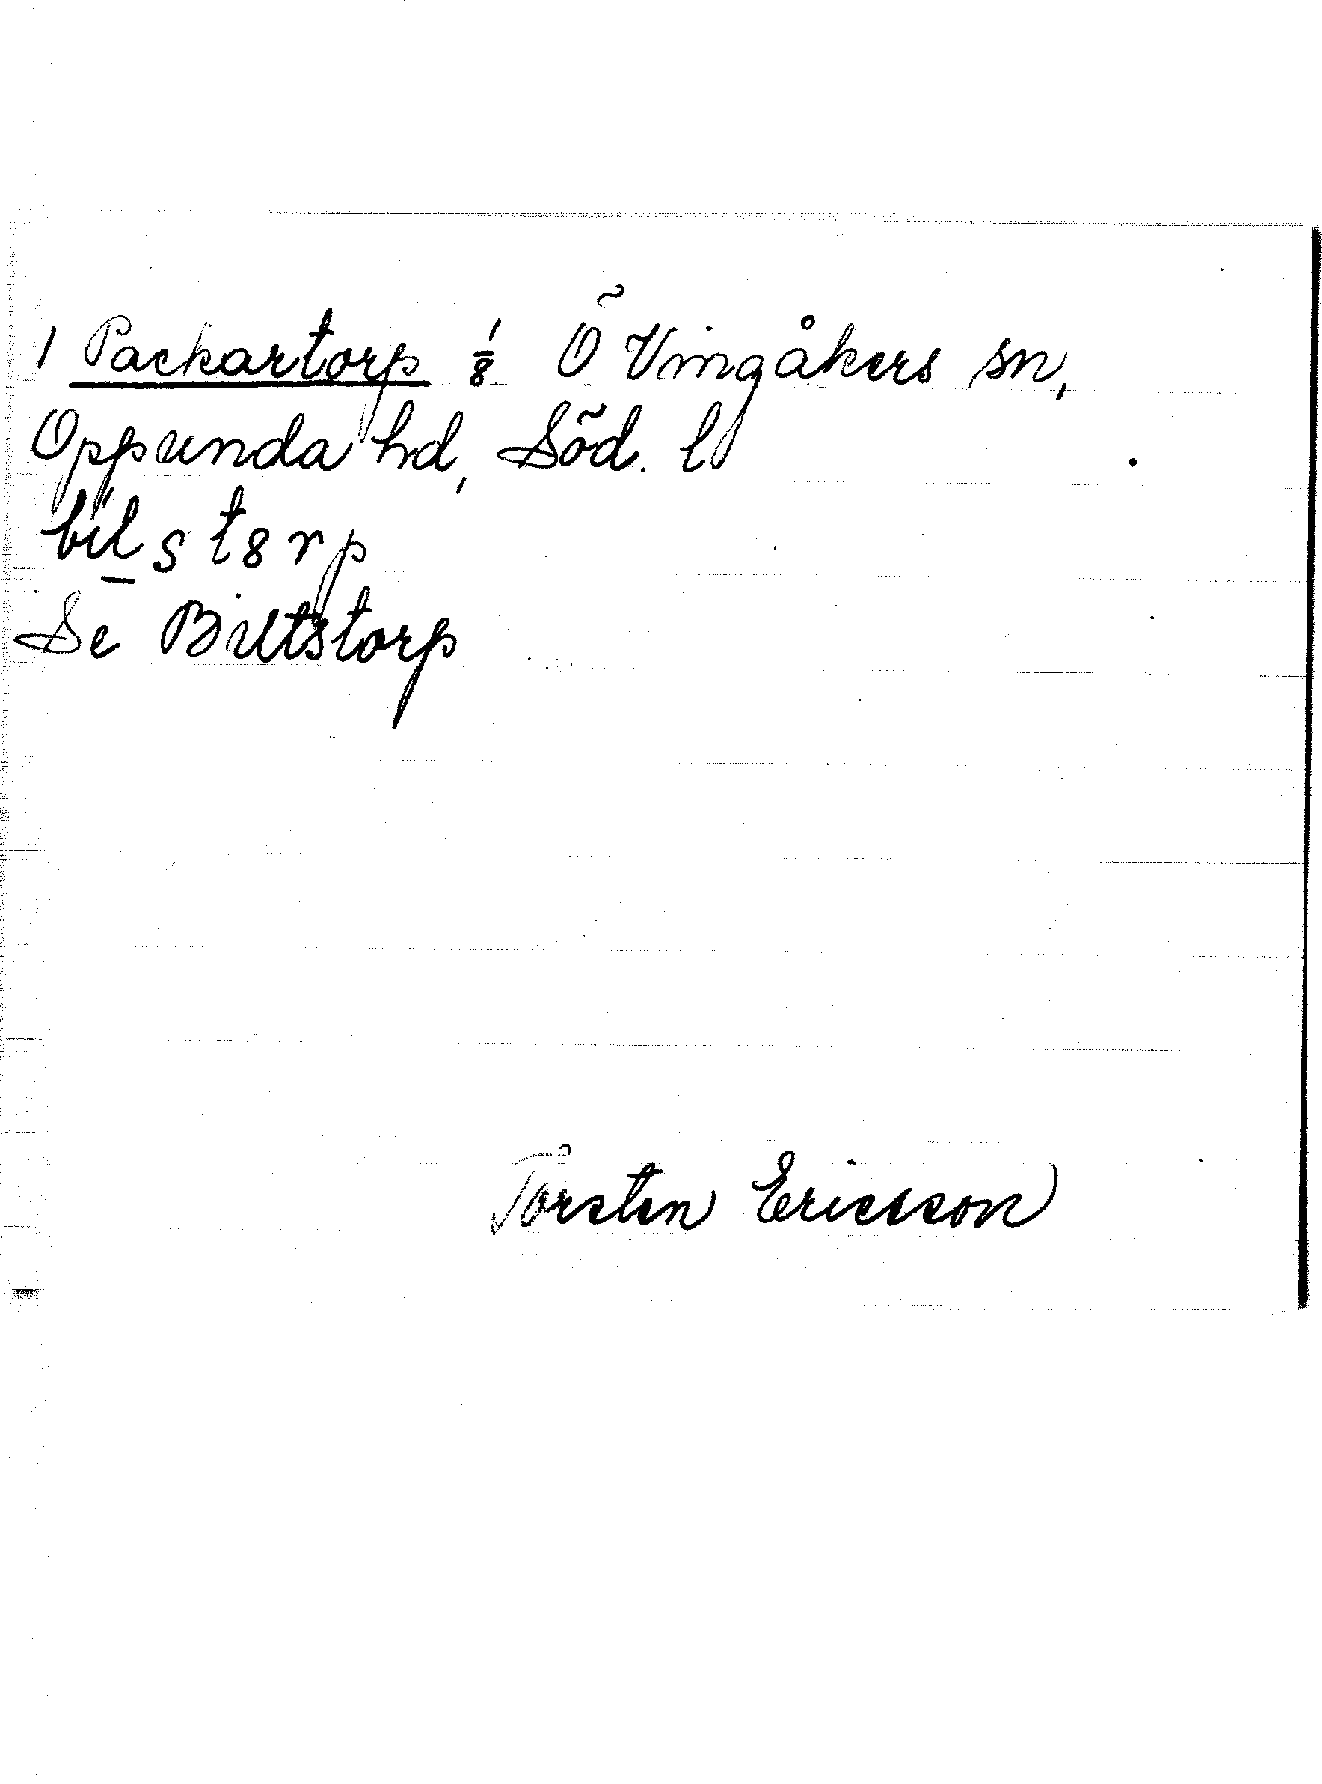 1 Packartorp 1/8 Ö Vingåkers sn,
Oppunda hd, Söd. l
bil s t8rp
Se Biltstorp
Torsten Ericsson